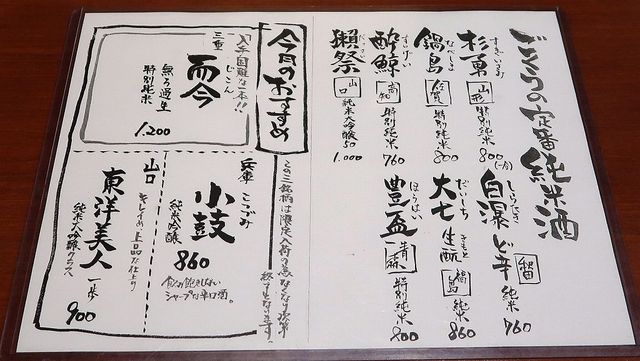 ごくうの定番純米酒
杉勇 すぎいさみ 山形 特別純米 800(一合)
鍋島 なべしま 佐賀 特別純米 800
酔鯨 すいげい 高知 特別純米 760
獺祭 だっさい 山口 純米大吟醸50 1.000
白瀑 しらたき ど辛 秋田 純米 760
大七 だいしち 生酛 きもと 福島 純米 860
豊盃 ほうはい 青森 特別純米 800
今月のおすすめ
入手困難な一本!!
三重 而今 じこん
無ろ過生
特別純米
1.200
この三銘柄は限定入荷の為なくなり次第
終了となります。
兵庫 小鼓 こつづみ
純米吟醸 860
シャープな辛口酒。
山口 東洋美人 一歩
上品な仕上り
純米大吟醸クラス 900